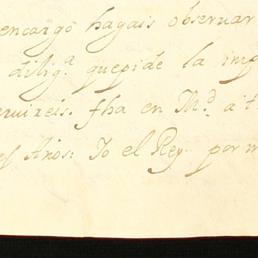 encargò hagais observar
dilig.ª que pide la imp
fha en M.d a t
Años: Yo el Rey. por m